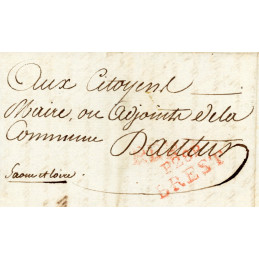 Aux Citoyens
Maire, ou Adjoints de la
Commune Dautun
Saone et Loire
BREST